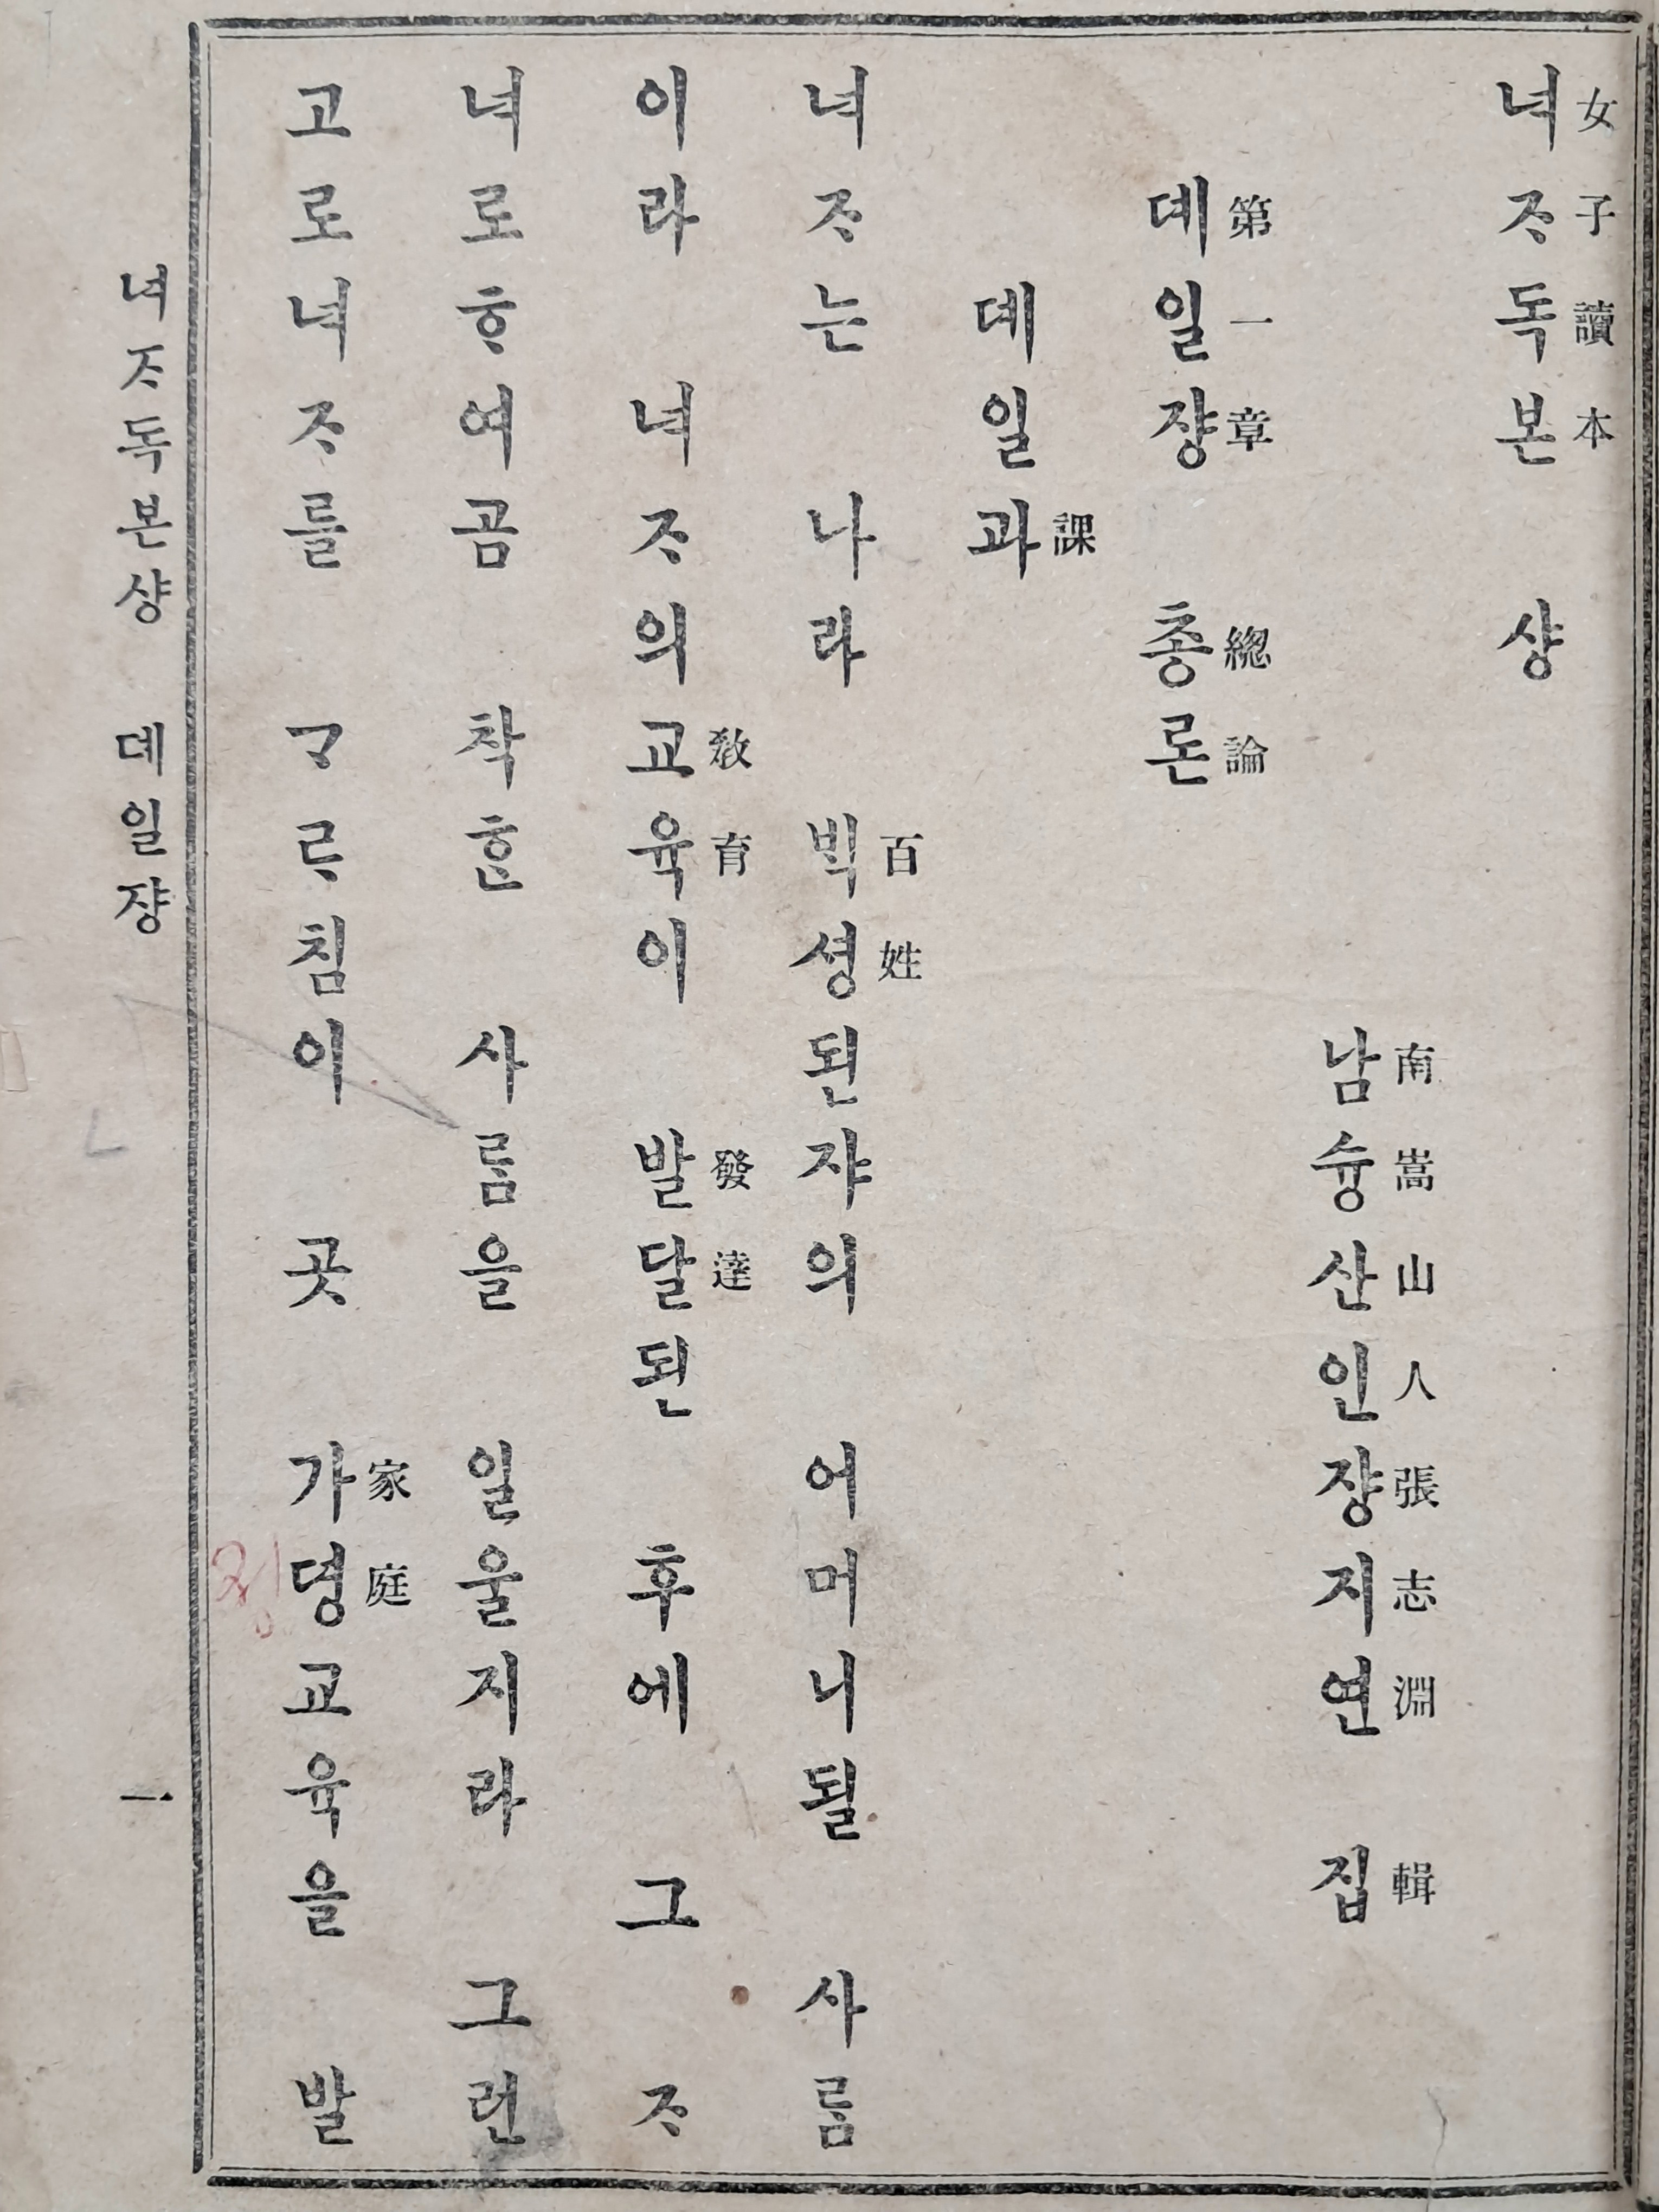 女子讀本
녀ᄌᆞ독본 샹
南嵩山人張志淵 輯
남슝산인쟝지연 집
第一章 總論
뎨일쟝 총론
課
뎨일과
百姓
녀ᄌᆞ는 나라 ᄇᆡᆨ셩된쟈의 어머니될 사ᄅᆞᆷ
敎育 發達
이라 녀ᄌᆞ의교육이 발달된 후에 그 ᄌᆞ
녀로ᄒᆞ여곰 착ᄒᆞᆫ 사ᄅᆞᆷ을 일울지라 그런
家庭
고로녀ᄌᆞ를 ᄀᆞᄅᆞ침이 곳 가뎡교육을 발
녀ᄌᆞ독본샹 뎨일쟝 一